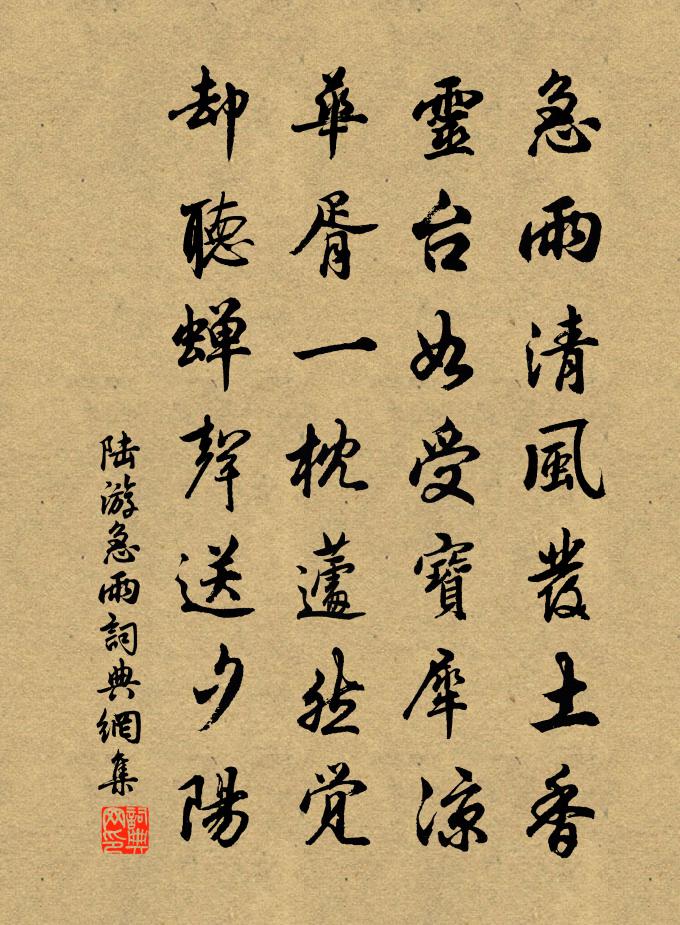 急雨清風發土香
靈台如受寶犀涼
華胥一枕蘧然覚
却聽蟬聲送夕陽
陆游急雨詞典網集
詞典網印